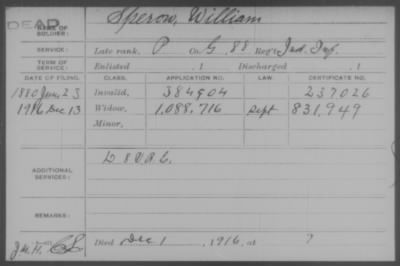 DEAD. Sperow, William
NAME OF SOLDIER:
SERVICE: Late rank, P Co. G, 88 Reg't Ind. Inf.
TERM OF SERVICE: Enlisted , 1 Discharged , 1
DATE OF FILING. CLASS. APPLICATION NO. LAW CERTIFICATE NO.
1880 June 23 Invalid, 384904 237026
1916 Dec 13 Widow, 1,088,716 Sept 831,949
Minor,
ADDITIONAL SERVICES:
REMARKS:
J.M.H. Died Dec 1, 1916, at ?